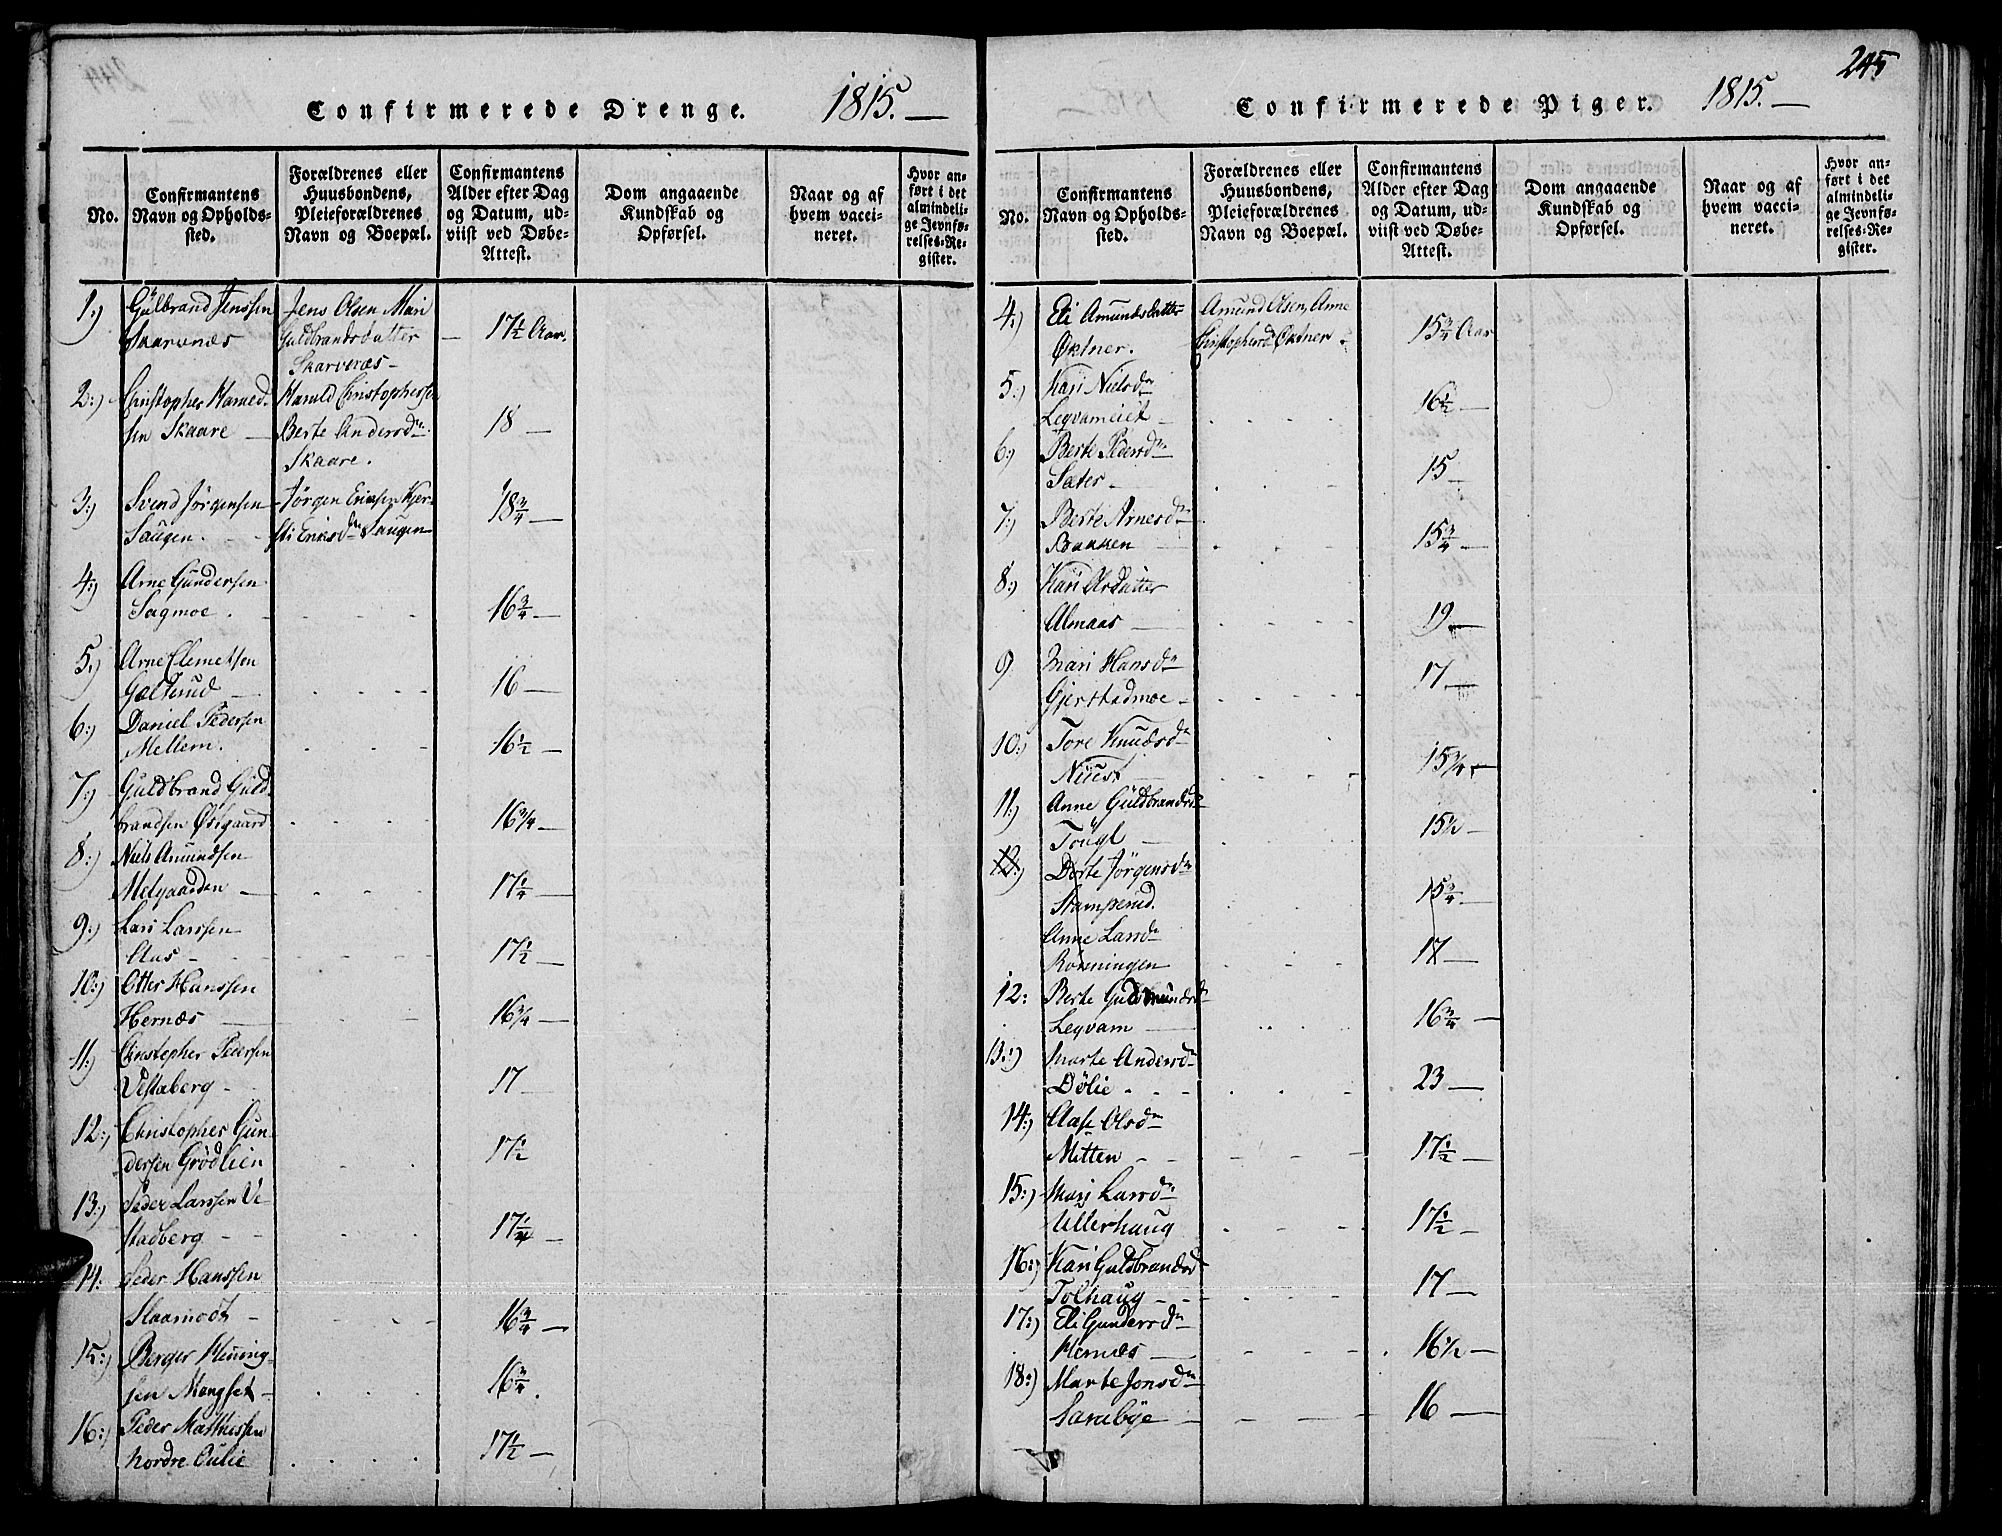 Confirmerede Drenge. 1815. —
No.
Confirmantens Navn og Opholds-sted.
Forældrenes eller Huusbondens, Pleieforældrenes Navn og Boepæl.
Confirmantens Alder efter Dag og Datum, ud-viist ved Døbe-Attest.
Dom angaaende Kundskab og Opførsel.
Naar og af hvem vacci-neret.
Hvor an-ført i det almindeli-ge Jevnfø-relses-Re-gister.
1:) Gulbrand Jenssen Jens Olsen Mari
Skarvnæs Guldbrandsdatter — 17½ Aar.
Skarvnæs —
2:) Christopher Harved- Harald Christophersen
sen Skaare — Berte Andersdr 18 —
Skaare.
3:) Svend Jørgensen — Jørgen Ericsen Kjer-
Saugen. sti Ericsdr Saugen 18¾ —
4:) Arne Gundersen
Sagmoe. 16¾ —
5:) Arne Clemetsen
Galterud — 16 —
6:) Daniel Pedersen
Mellem. 16½ —
7:) Guldbrand Guld-
brandsen Østgaard 16¾ —
8:) Niels Amundsen
Melgaarden — 17¼ —
9:) Lars Larssen
Aas — 17½ —
10:) Otter Hanssen
Hernæs — 16¾ —
11:) Christopher Pedersen
Vestaberg — 17 —
12:) Christopher Gun-
dersen Grødlien 17½
13:) Peder Larssen Ve-
stadberg — 17¼ —
14: Peder Hanssen
Skaamodt — 16¾ —
15:) Berger Hening-
sen Mangset — 16¾.
16:) Peder Mathissen
Nordre Julie 17½ —
245
Confirmerede Piger. 1815. —
No.
Confirmantens Navn og Opholds-sted.
Forældrenes eller Huusbondens, Pleieforældrenes Navn og Boepæl.
Confirmantens Alder efter Dag og Datum, ud-viist ved Døbe-Attest.
Dom angaaende Kundskab og Opførsel.
Naar og af hvem vacci-neret.
Hvor an-ført i det almindeli-ge Jevnfø-relses-Re-gister.
4:) Eli Amundsdatter Amund Olsen, Anne
Øktner. Christophersdr Øktner. 15¾ Aar
5:) Kari Nielsdr
Legvameiet — 16½ —
6:) Berte Pedersdr
Sæter — 15 —
7:) Berte Arnesdr
Bakken — 15¾ —
8:) Kari Olsdatter
Almaas — 19 —
9 Mari Hansdr
Gjerstadmoe — 17 —
10:) Tore Knudsdr
Nust — 15¾ —
11:) Anne Guldbrandsdr
Tougl — 15½ —
12:) Dorte Jørgensdr
Stamperud. 15¾ —
Anne Larsdr
Rønningen 17 —
12: Berte Gudmundsdr
Legvam — 16¾ —
13:) Marte Andersdr
Dølie. 23 —
14:) Aase Olsdr
Mitten — 17½ —
15:) Mari Larsdr
Ullerhaug 17½ —
16:) Kari Guldbrandsdr
Tolhaug — 17 —
17:) Eli Gundersdr
Hernæs — 16½ —
18:) Marte Jonsdr
Sørebye — 16 —